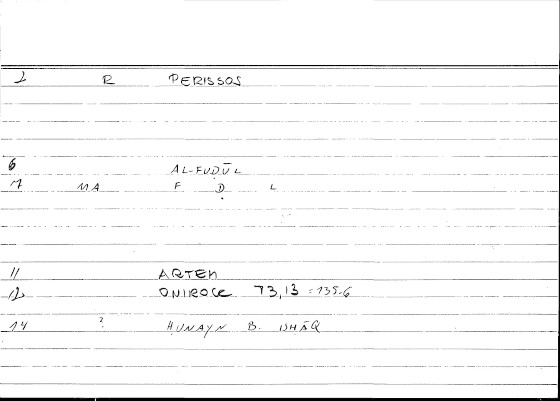 2 R PERISSOS
6 AL-FUḌŪL
7 MA F Ḍ L
11 ARTEM
12 ONIROCR 73,13 = 135.6
14 ? ḤUNAYN B. ISḤĀQ